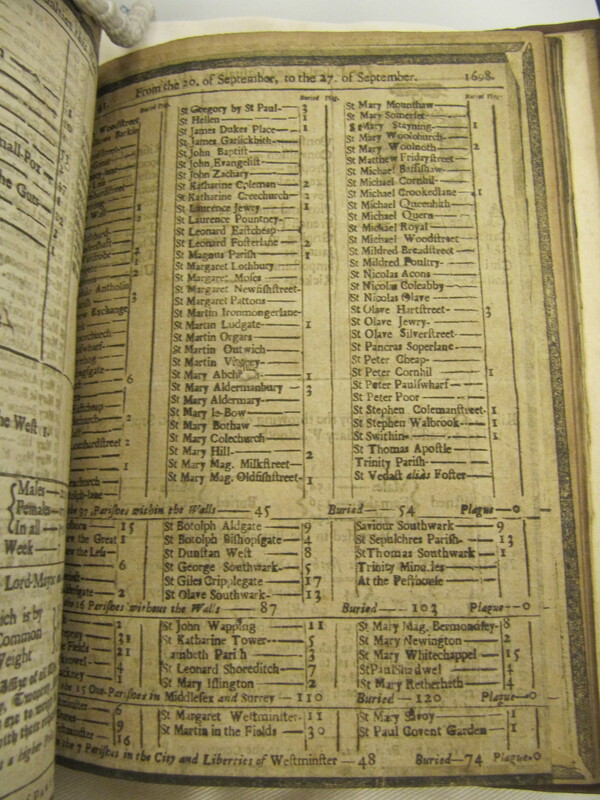 From the 20. of September, to the 27. of September. 1698.
Buried Plag.
St Gregory by St Paul— 3
St Hellen — 1
St James Dukes Place— 1
St James Garlickhith—
St John Baptist
St John Evangelist—
St John Zachary
St Katharine Coleman— 2
St Katharine Creechurch— 2
St Laurence Jewry— 1
St Laurence Pountney—
St Leonard Eastcheap
St Leonard Fosterlane— 2
St Magnus Parish— 1
St Margaret Lothbury
St Margaret Moses
St Margaret Newfishstreet—
St Margaret Pattons
St Martin Ironmongerlane—
St Martin Ludgate— 1
St Martin Orgars
St Martin Outwich
St Martin Vintrey
St Mary Abchurch
St Mary Aldermanbury
St Mary Aldermary—
St Mary le-Bow
St Mary Bothaw
St Mary Colechurch
St Mary Hill— 2
St Mary Mag. Milkstreet—
St Mary Mag. Oldfishstreet— 1
Buried Plag.
St Mary Mounthaw
St Mary Somerset
St Mary Stayning— 1
St Mary Woolchurch—
St Mary Woolnoth— 2
St Matthew Fridaystreet
St Michael Bassishaw
St Michael Cornhil
St Michael Crookedlane— 1
St Michael Queenhith
St Michael Quern
St Michael Royal
St Michael Woodstreet
St Mildred Breadstreet
St Mildred Poultry—
St Nicolas Acons
St Nicolas Coleabby
St Nicolas Olave
St Olave Hartstreet— 3
St Olave Jewry—
St Olave Silverstreet—
St Pancras Soperlane—
St Peter Cheap
St Peter Cornhil 1
St Peter Paulswharf—
St Peter Poor
St Stephen Colemanstreet— 1
St Stephen Walbrook— 1
St Swithin— 1
St Thomas Apostle
Trinity Parish—
St Vedast alias Foster—
97 Parishes within the Walls— 45 Buried— 54 Plague—0
St Botolph Aldgate— 9
St Botolph Bishopsgate— 4
St Dunstan West— 8
St George Southwark— 5
St Giles Cripplegate— 17
St Olave Southwark— 13
Saviour Southwark— 9
St Sepulchres Parish— 13
St Thomas Southwark— 1
Trinity Minories
At the Pesthouse—
16 Parishes without the Walls— 87 Buried— 103 Plague—0
St John Wapping— 11
St Katharine Tower— 5
Lambeth Parish 3
St Leonard Shoreditch— 7
St Mary Islington— 2
St Mary Mag. Bermondsey— 8
St Mary Newington— 2
St Mary Whitechappel— 15
St Paul Shadwel— 4
St Mary Retherhith— 4
15 Out-Parishes in Middlesex and Surrey— 110 Buried— 120 Plague—0
St Margaret Westminster— 11
St Martin in the Fields— 30
St Mary Savoy— 1
St Paul Covent Garden— 1
the 7 Parishes in the City and Liberties of Westminster— 48 Buried—74 Plague—0
Males
Females
In all
Week
Lord-Mayor
Common
Weight